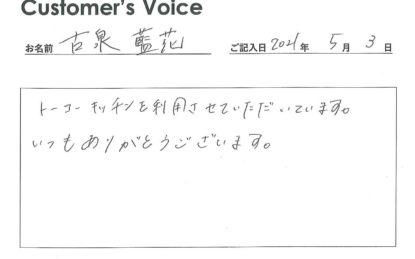 Customer's Voice
お名前 古泉 藍花 ご記入日 2021年 5月 3日
トーコーキッチンを利用させていただいています。
いつもありがとうございます。